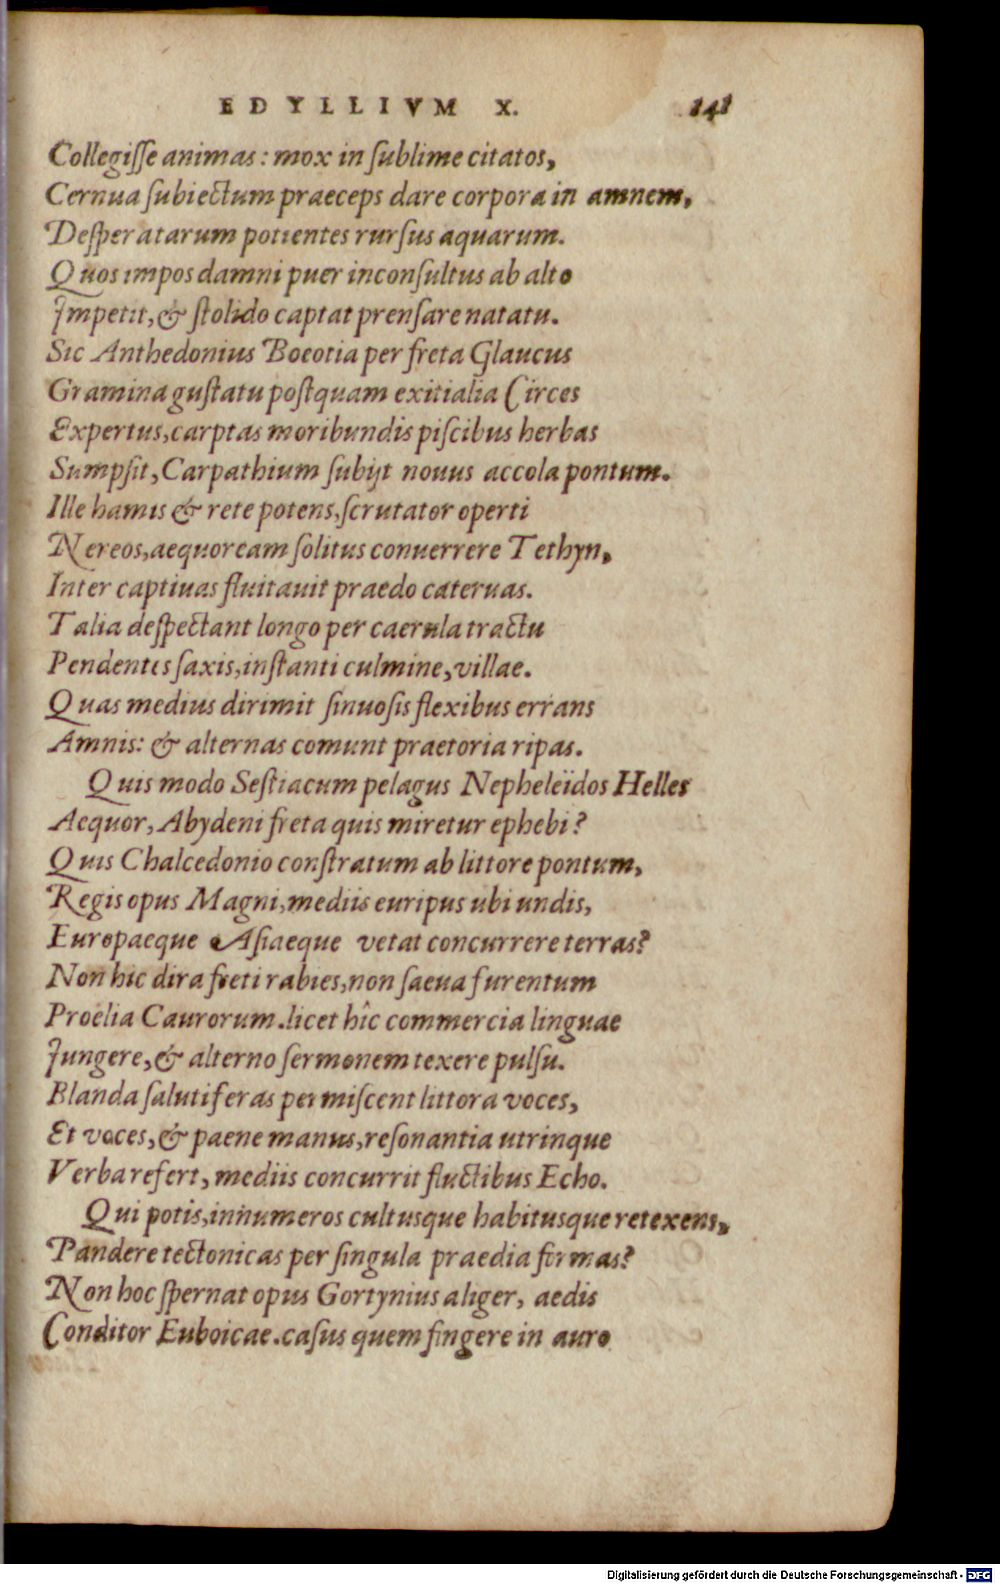 EDYLLIVM X. 141
Collegisse animas: mox in sublime citatos,
Cernua subiectum praeceps dare corpora in amnem,
Desperatarum potientes rursus aquarum.
Quos impos damni puer inconsultus ab alto
Impetit, & stolido captat prensare natatu.
Sic Anthedonius Boeotia per freta Glaucus
Gramina gustatu postquam exitialia Circes
Expertus, carptas moribundis piscibus herbas
Sumpsit, Carpathium subijt nouus accola pontum.
Ille hamis & rete potens, scrutator operti
Nereos, aequoream solitus conuerrere Tethyn,
Inter captiuas fluitauit praedo cateruas.
Talia despectant longo per caerula tractu
Pendentes saxis, instanti culmine, villae.
Quas medius dirimit sinuosis flexibus errans
Amnis: & alternas comunt praetoria ripas.
Quis modo Sestiacum pelagus Nepheleïdos Helles
Aequor, Abydeni freta quis miretur ephebi?
Quis Chalcedonio constratum ab littore pontum,
Regis opus Magni, mediis euripus ubi undis,
Europaeque Asiaeque vetat concurrere terras?
Non hic dira freti rabies, non saeua furentum
Proelia Caurorum. licet hîc commercia linguae
Jungere, & alterno sermonem texere pulsu.
Blanda salutiferas permiscent littora voces,
Et voces, & paene manus, resonantia utrinque
Verba refert, mediis concurrit fluctibus Echo.
Qui potis, innumeros cultusque habitusque retexens,
Pandere tectonicas per singula praedia formas?
Non hoc spernat opus Gortynius aliger, aedis
Conditor Euboicae. casus quem fingere in auro
Digitalisierung gefördert durch die Deutsche Forschungsgemeinschaft - DFG